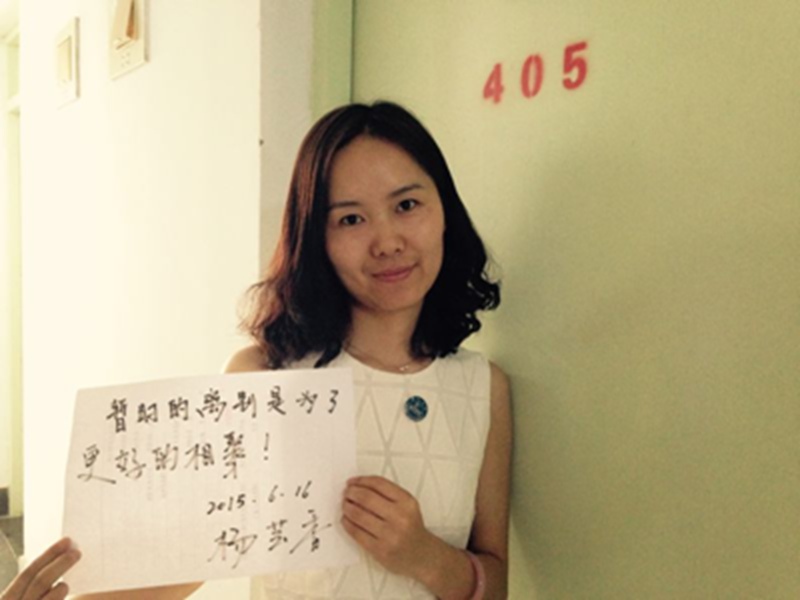 405
暂时的离别是为了
更好的相聚!
2015.6.16
杨芸香